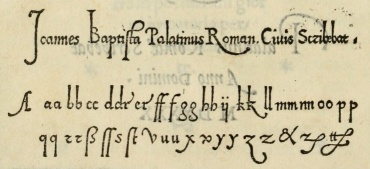 Joannes Baptista Palatinus Roman. Civis Scribebat.
A aa bb cc ddr er ff f gg hh ij kk ll mm m oo pp
qq rr ß ſſ s ſt v uu x yy y z z &